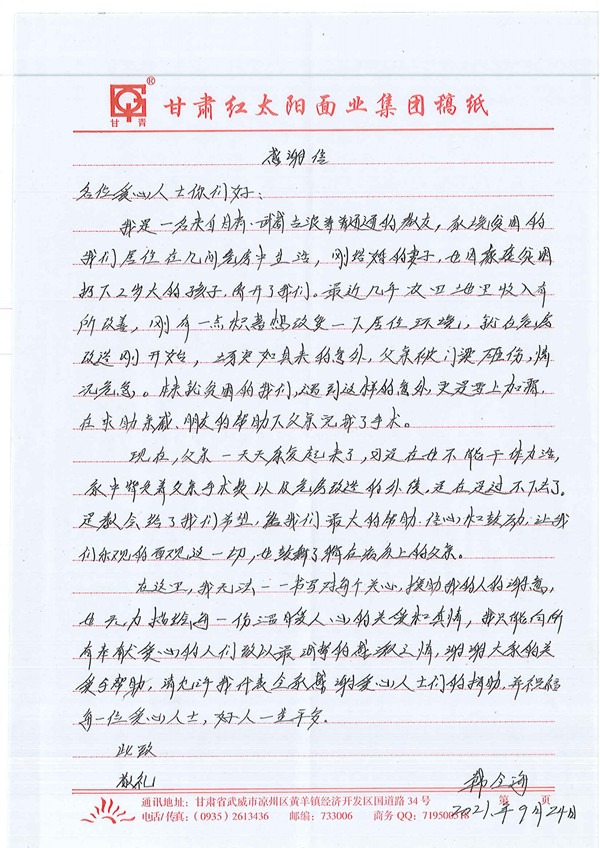 甘青
®
甘肃红太阳面业集团稿纸
感谢信
各位爱心人士你们好:
我是一名来自甘肃·武威古浪普通的教友,家境贫困的
我们居住在几间危房中生活,刚娶的妻子,也因家庭贫困
扔下2岁大的孩子,离开了我们。最近几年农卫地里收入有
所改善,刚有一点积蓄想改变一下居住环境,就在危房
改造刚开始,一场突如其来的意外,父亲被门梁砸伤,情
况危急。本就贫困的我们,遇到这样的意外更是雪上加霜,
在求助亲戚、朋友的帮助下父亲完成了手术。
现在,父亲一天天康复起来了,可是在也不能干体力活,
家中背负着父亲手术费以及危房改造的外债,是在是过不下去了。
是教会给了我们希望,给我们最大的帮助、信心和鼓励,让我
们乐观的面观这一切,也鼓舞了躺在病床上的父亲。
在这里,我无法一一书写对每个关心,援助我的人的谢意,
也无力描绘每一份温暖人心的关爱和真情,我只能向所
有奉献爱心的人们致以最诚挚的感激之情,谢谢大家的关
爱与帮助,请允许我代表全家感谢爱心人士们的捐助,并祝福
每一位爱心人士,好人一生平安。
此致
敬礼
韩
2021年9月24日
第 页
通讯地址:甘肃省武威市凉州区黄羊镇经济开发区国道路34号
电话/传真:(0935)2613436 邮编:733006 商务QQ:719500518